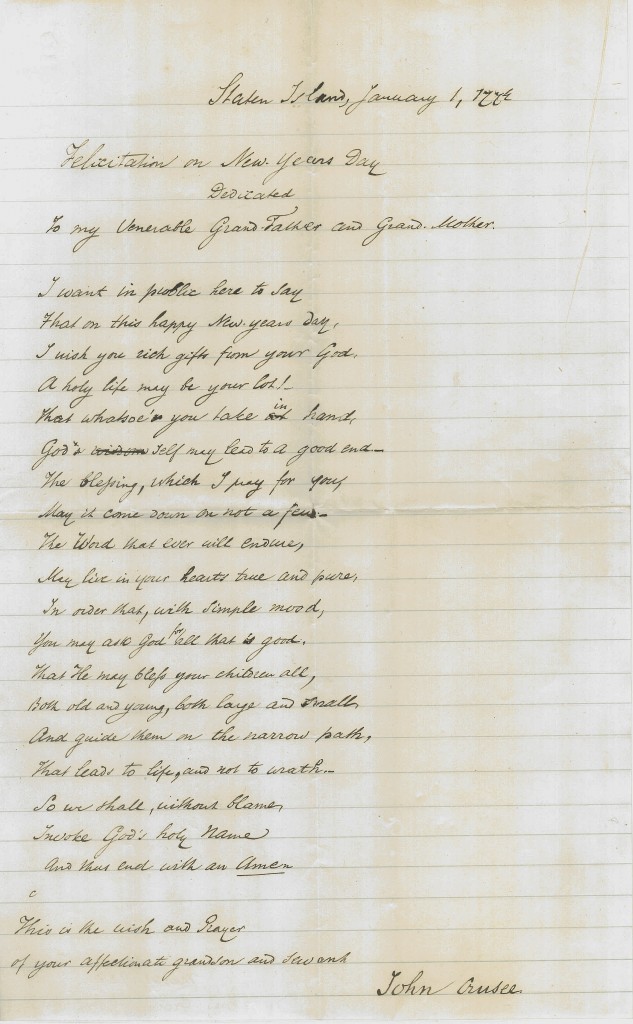 Staten Island, January 1, 1774
Felicitation on New Years Day
Dedicated
To my Venerable Grand-Father and Grand-Mother.
I want in public here to say
That on this happy New-years Day,
I wish you rich gifts from your God.
A holy life may be your lot!-
That whatsoe'r you take in hand,
God's self may lead to a good end-
The blessing, which I pray for you,
May it come down on not a few-
The Word that ever will endure,
May live in your hearts true and pure,
In order that, with simple mood,
You may ask God for all that is good.
That He may bless your children all,
Both old and young, both large and small
And guide them on the narrow path,
That leads to life, and not to wrath-
So we shall, without blame,
Invoke God's holy Name
And thus end with an Amen
c
This is the wish and Prayer
of your affectionate grandson and servant
John Crusee